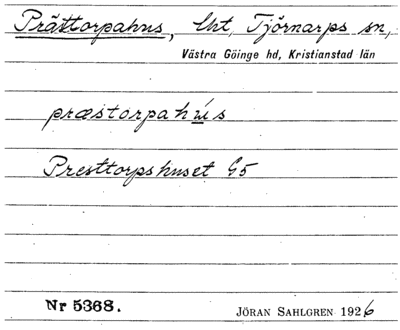 Prästtorpahus, lht, Tjörnarps sn,
Västra Göinge hd, Kristianstad län
præstorpahú̲s
Presttorpshuset G5
Nr 5368.
JÖRAN SAHLGREN 1926